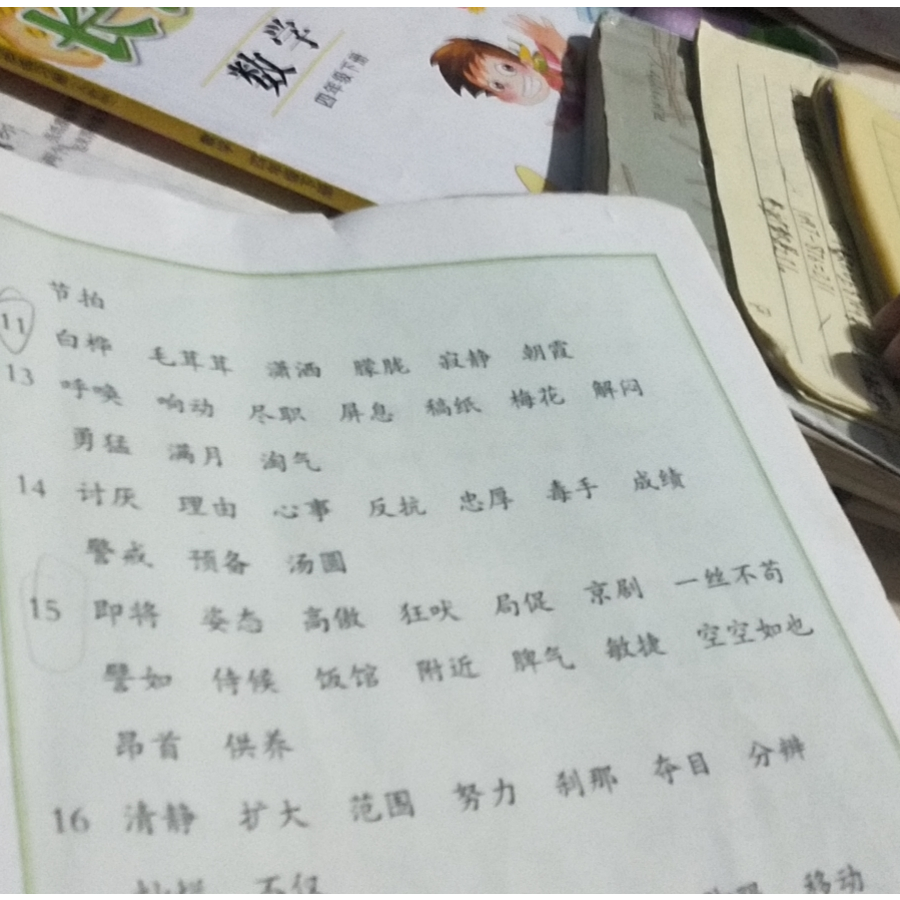 数学
四年级下册
节拍
11 白桦 毛茸茸 潇洒 朦胧 寂静 朝霞
13 呼唤 响动 尽职 屏息 稿纸 梅花 解闷
勇猛 满月 淘气
14 讨厌 理由 心事 反抗 忠厚 毒手 成绩
警戒 预备 汤圆
15 即将 姿态 高傲 狂吠 局促 京剧 一丝不苟
譬如 侍候 饭馆 附近 脾气 敏捷 空空如也
昂首 供养
16 清静 扩大 范围 努力 刹那 夺目 分辨
不仅 移动